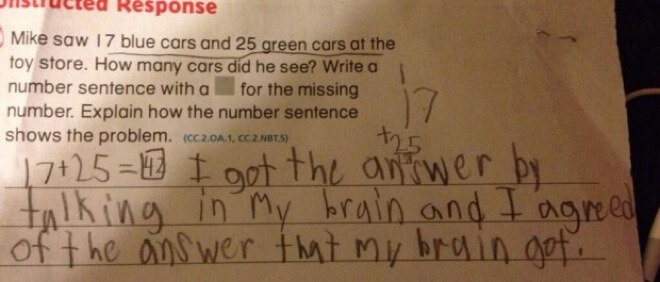 Constructed Response
Mike saw 17 blue cars and 25 green cars at the
toy store. How many cars did he see? Write a
number sentence with a for the missing
number. Explain how the number sentence
shows the problem. (CC.2.OA.1, CC.2.NBT.5)
1
17
+25
17+25=42 I got the answer by
talking in my brain and I agreed
of the answer that my brain got.